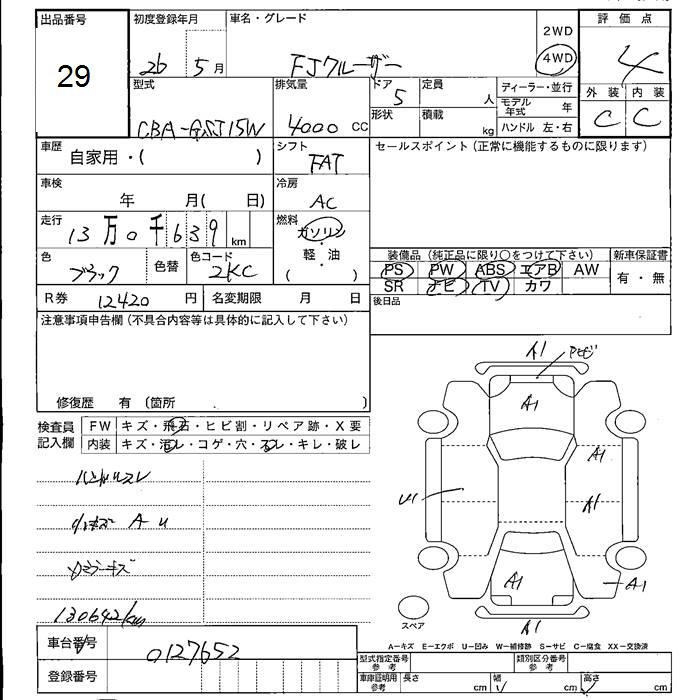 出品番号
29
初度登録年月
26 5月
車名・グレード
FJクルーザー
2WD
4WD
評価点
4
外装 内装
C C
型式
CBA-GSJ15W
排気量
4000 CC
ドア
5
形状
定員
人
積載
kg
ディーラー・並行
モデル年式 年
ハンドル 左・右
車歴
自家用・( )
シフト
FAT
セールスポイント(正常に機能するものに限ります)
車検
年 月( 日)
冷房
AC
走行
13万0千639 km
燃料
ガソリン
・
軽・油
・
( )
色
ブラック
色替
色コード
2KC
装備品(純正品に限り○をつけて下さい)
PS PW ABS エアB AW
SR ナビ TV カワ
新車保証書
有・無
後日品
R券 12420 円
名変期限 月 日
注意事項申告欄(不具合内容等は具体的に記入して下さい)
修復歴 有 (箇所 )
検査員記入欄
FW キズ・飛石・ヒビ割・リペア跡・X要
内装 キズ・汚レ・コゲ・穴・スレ・キレ・破レ
ハンドルスレ
A U
ミラーキズ
130642km
A1
A1
A1
U1
A1
A1
A1
A1
スペア
A-キズ E-エクボ U-凹み W-補修跡 S-サビ C-腐食 XX-交換済
車台番号
0127652
登録番号
型式指定番号
参考
類別区分番号
参考
車庫証明用
参考
長さ cm
幅 cm
高さ cm